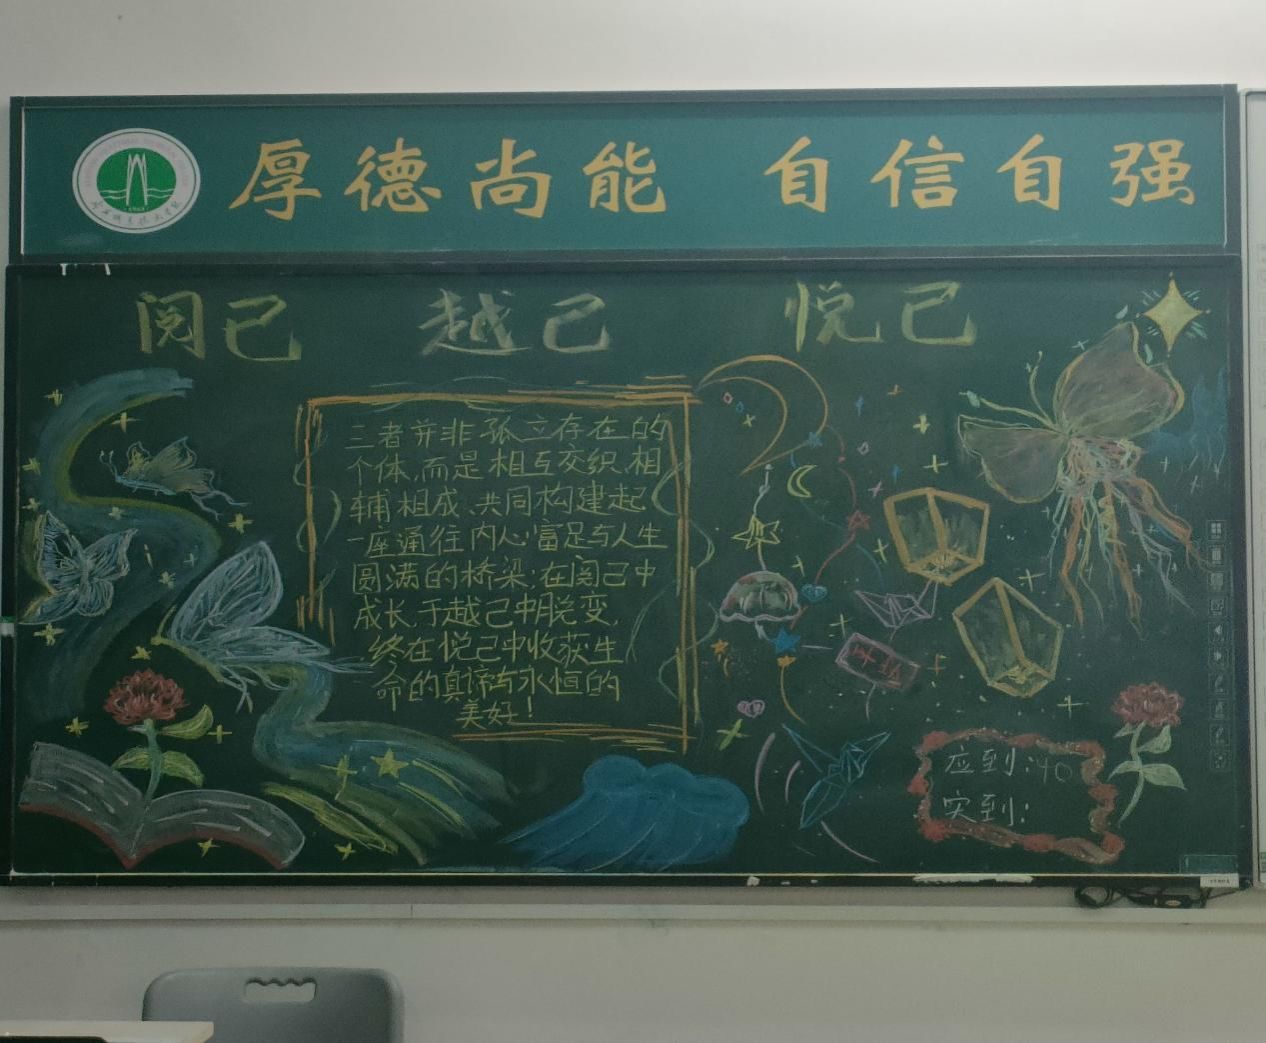 厚德尚能 自信自强
阅己 越己 悦己
三者并非孤立存在的
个体,而是相互交织、相
辅相成、共同构建起
一座通往内心富足与人生
圆满的桥梁;在阅己中
成长,于越己中脱变,
终在悦己中收获生
命的真谛与永恒的
美好!
应到:40
实到: